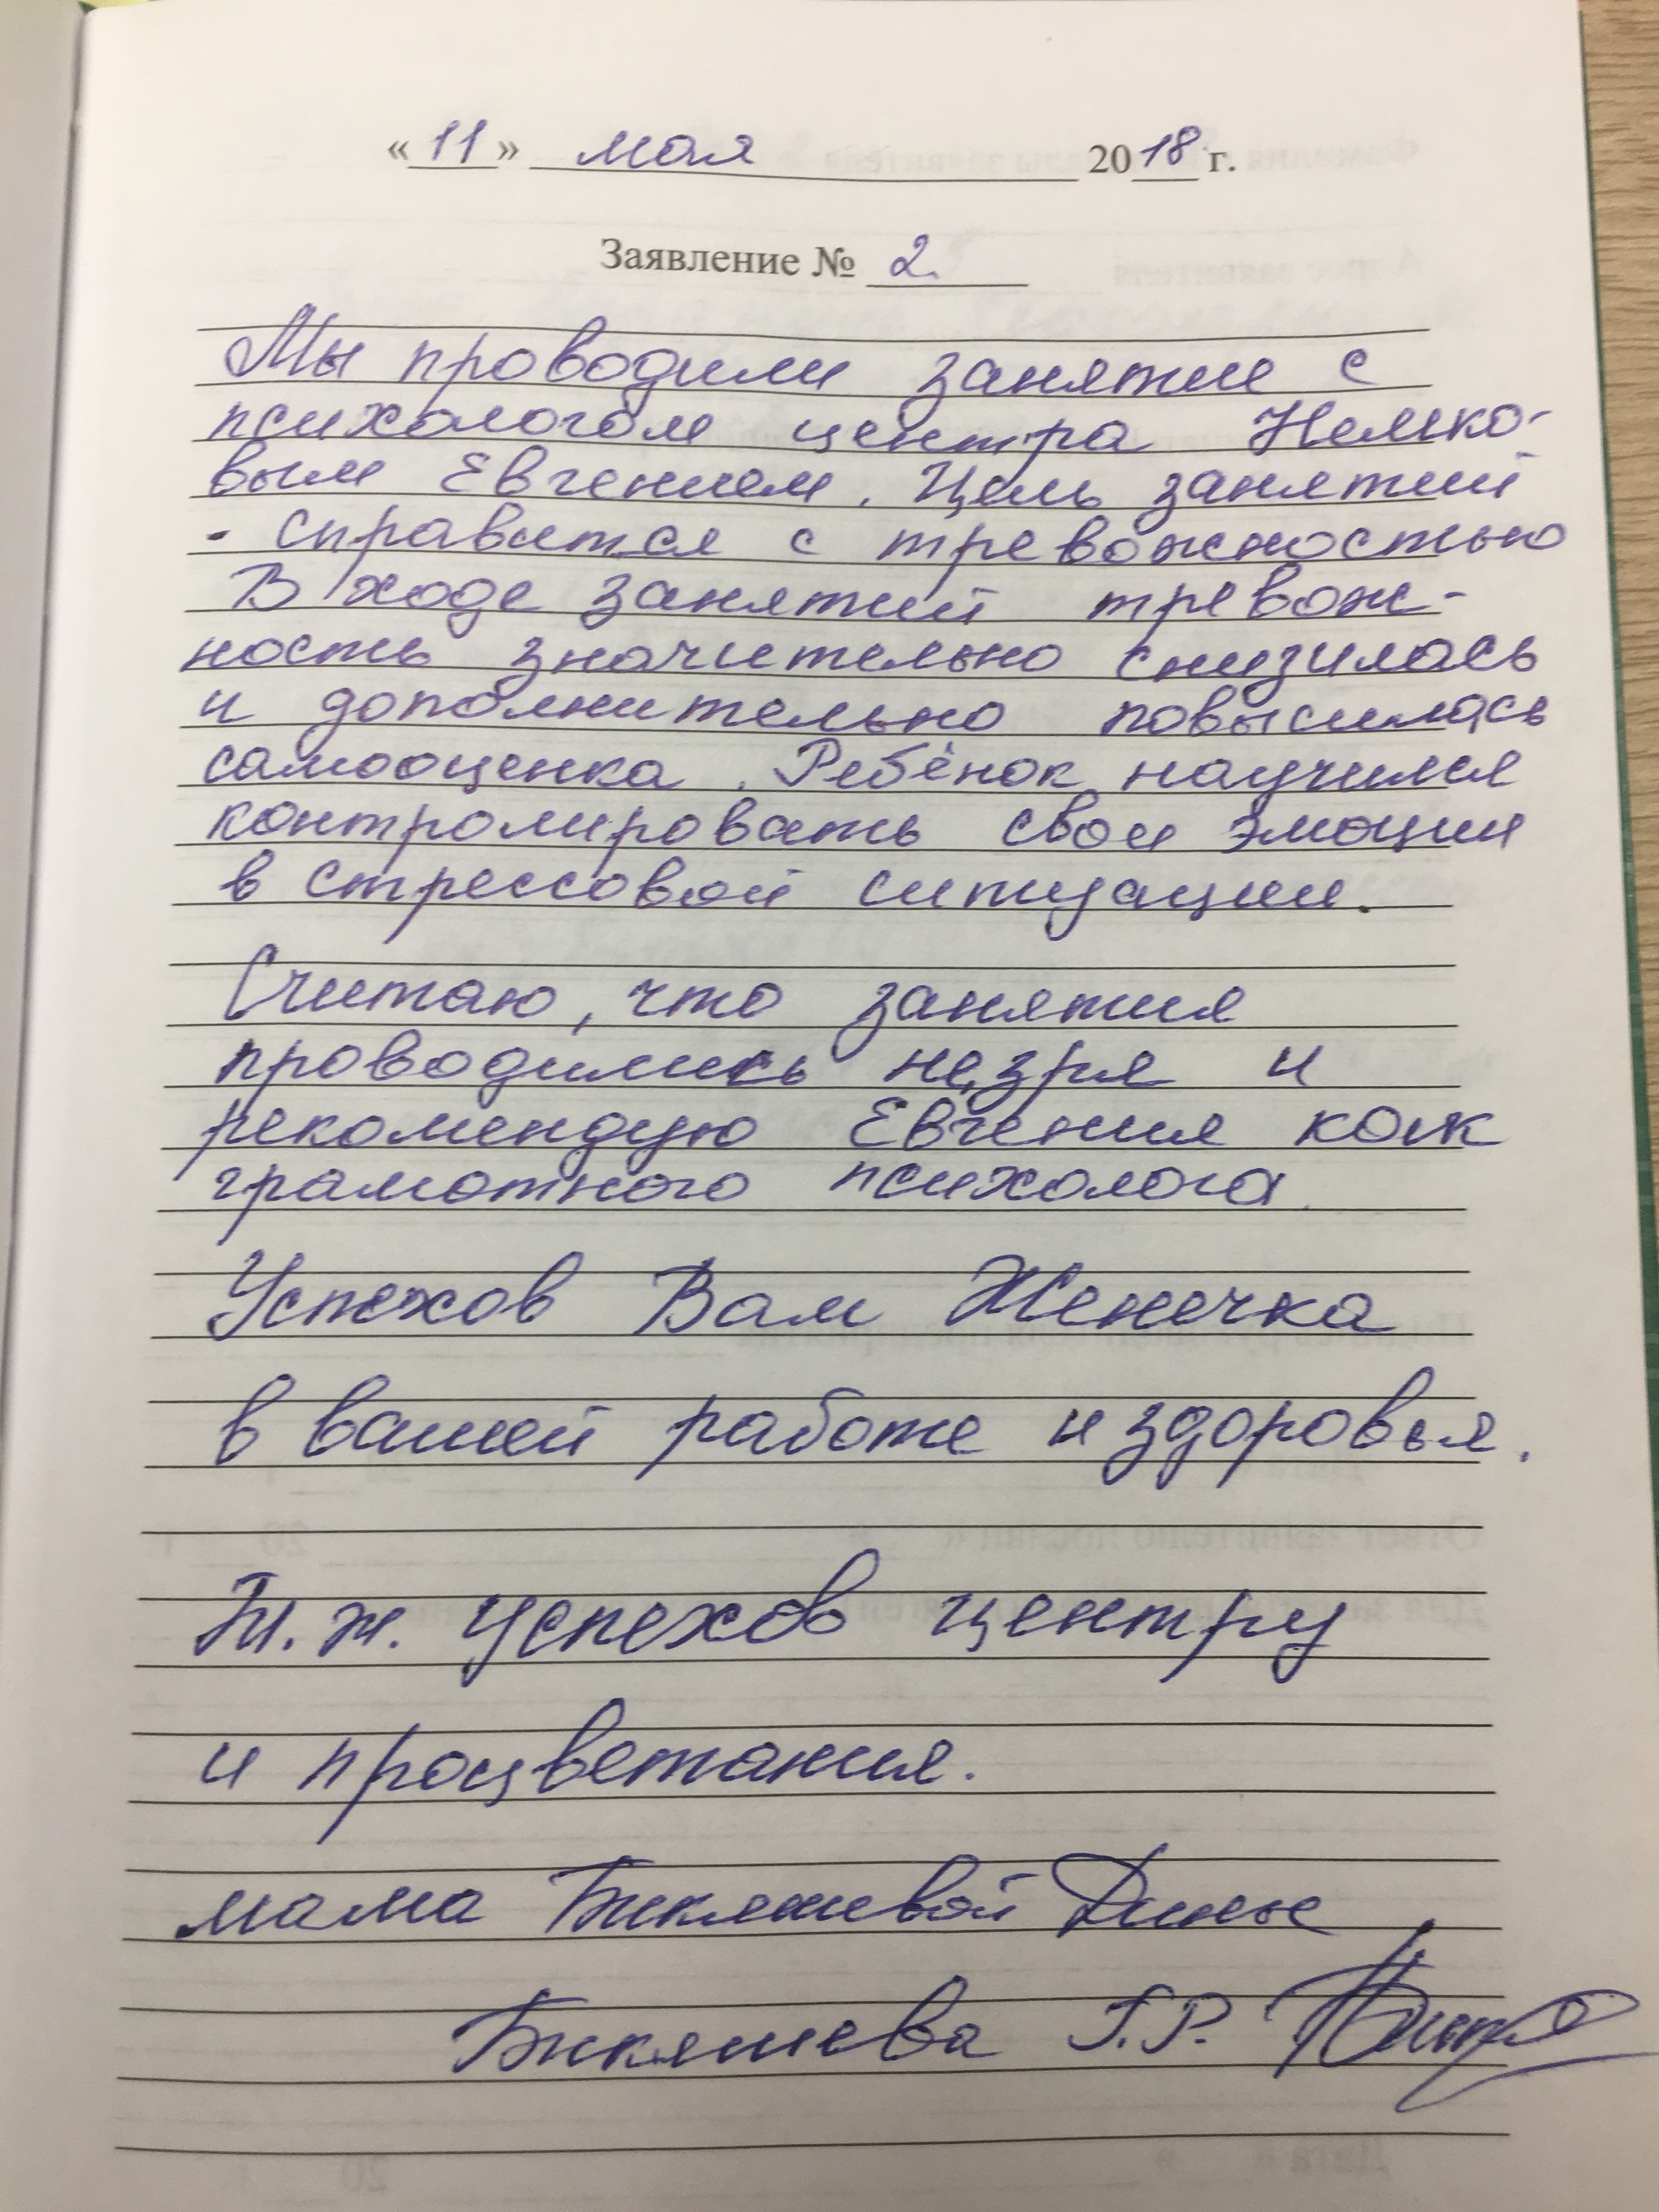 «11» мая 2018 г.
Заявление № 2.
Мы проводили занятие с
психологом центра Немко-
вым Евгением. Цель занятий
- справится с тревожностью
В ходе занятий тревож-
ность значительно снизилась
и дополнительно повысилась
самооценка. Ребёнок научился
контролировать свои эмоции
в стрессовой ситуации.
Считаю, что занятия
проводились не зря и
рекомендую Евгения как
грамотного психолога.
Успехов Вам Женечка
в вашей работе и здоровья.
Т.ж. успехов центру
и процветания.
мама Бикяшевой Дины
Бикяшева Г.Р.